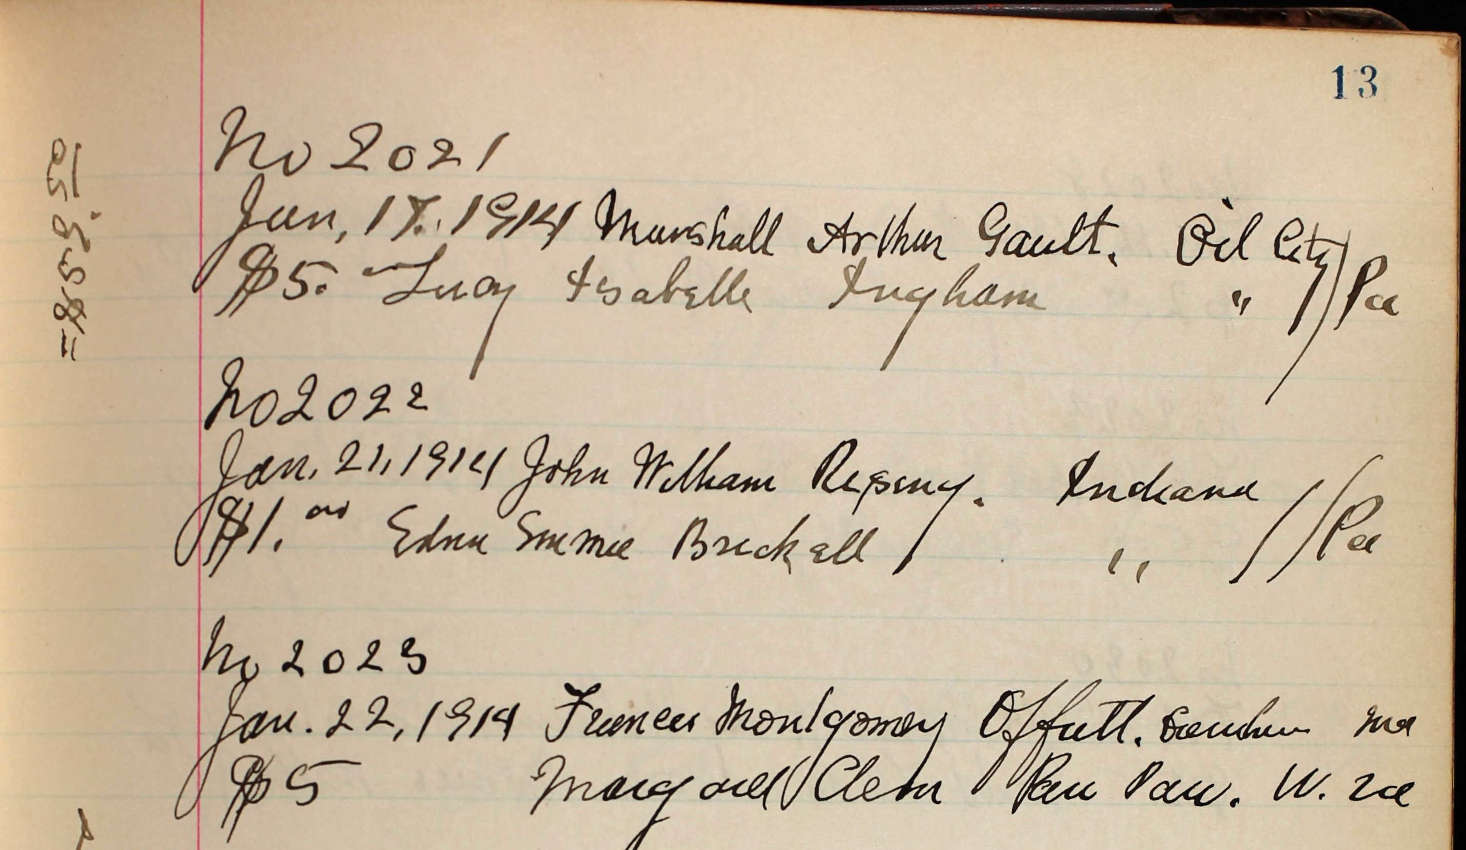 13
No 2021
Jan, 17. 1914 Marshall Arthur Gault. Oil City
$5. Lucy Isabelle Ingham " / Pa
No 2022
Jan. 21, 1914 John William Indiana
$1. 00 Edna Emmie Brickell " / Pa
No 2023
Jan. 22, 1914 Frances Montgomery Offutt. Md
$5 Margaret Clem Paw Paw. W. Va